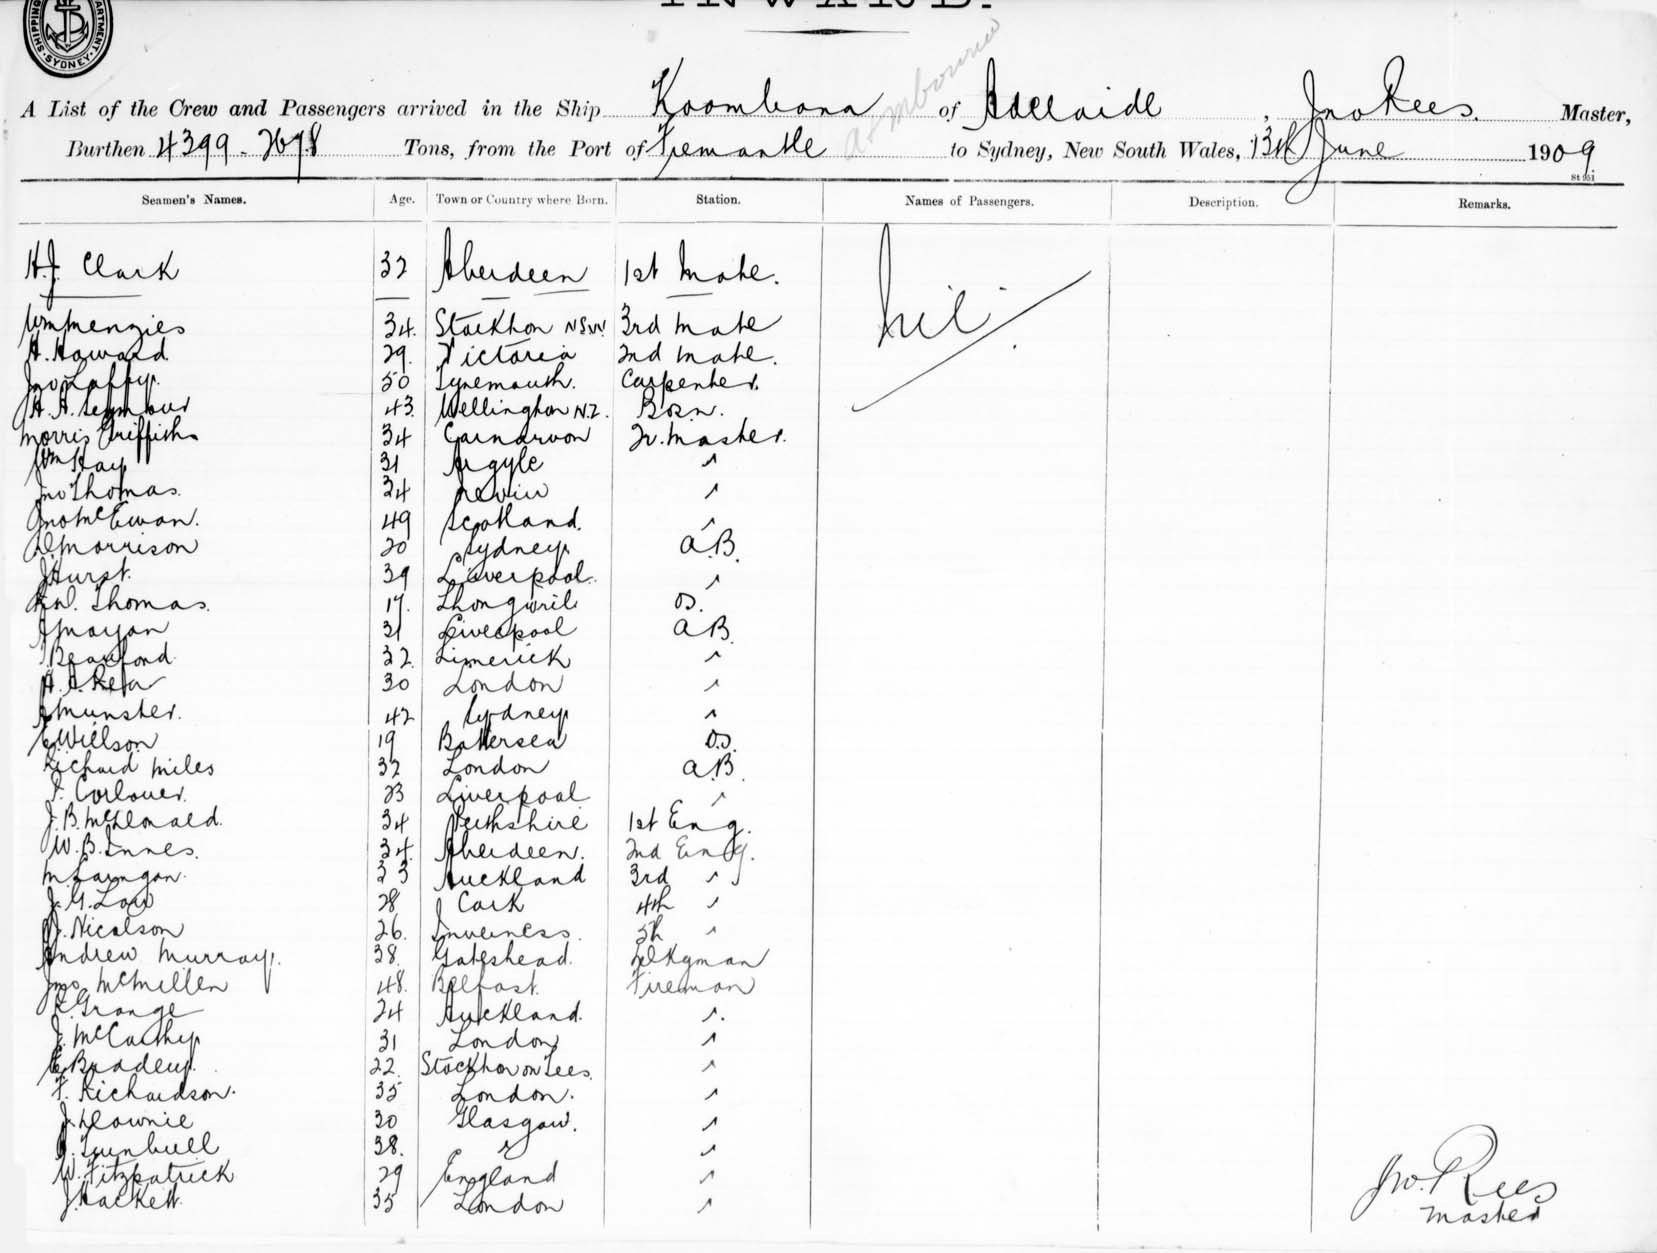 INWARD.
SHIPPING DEPARTMENT SYDNEY
A List of the Crew and Passengers arrived in the Ship Koombana of Adelaide, Jno Rees. Master,
Burthen 4399 - 2678 Tons, from the Port of Fremantle to Sydney, New South Wales, 13th June 1909
St 951
Seamen's Names. Age. Town or Country where Born. Station. Names of Passengers. Description. Remarks.
H.J. Clark 32 Aberdeen 1st Mate. Nil
Wm Menzies 34. Stockton NSW. 3rd Mate
H. Howard 29. Victoria 2nd Mate.
Jno Laffy. 50 Tynemouth. Carpenter.
H. A. Seymour 43. Wellington N.Z. Bosn.
Morris Griffiths 34 Carnarvon Qr. Master.
Wm Hay 31 Argyle "
Jno Thomas. 34 "
Jno McEwan. 49 Scotland. "
Morrison 20 Sydney. A.B.
J Hurst. 39 Liverpool. "
Thomas. 17. O.S.
31 Liverpool A.B.
32. Limerick "
30 London "
Munster. 42 Sydney "
Willson 19 Battersea O.S.
Richard Miles 32 London A.B.
23 Liverpool "
J. B. McDonald. 34 Perthshire 1st Eng.
W. B. Innes. 34. Aberdeen. 2nd Eng.
33 Auckland 3rd "
J. G. Low 28 Cork 4th "
Nicolson 26. Inverness. 5th "
Andrew Murray. 38. Gateshead. Dkyman
Jas McMillen 48. Belfast. Fireman
R. Grange 24 Auckland. "
J. McCarthy 31 London "
E. Bradley. 22. Stockton on Tees. "
F. Richardson. 35 London. "
J. Downie 30 Glasgow. "
Turnbull 38. " "
W. Fitzpatrick 29 England "
J. Hackett. 35 London "
Jno. Rees
Master